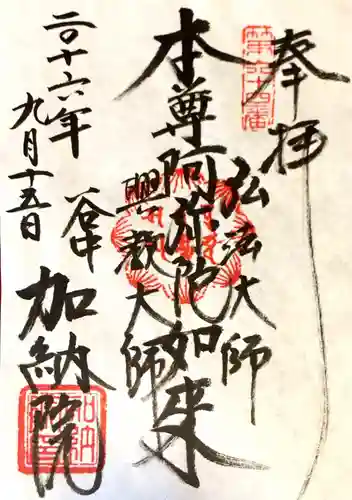 奉拝
第六十四番
弘法大師
本尊阿弥陀如来
興教大師
二〇十六年
九月十五日
谷中
加納院